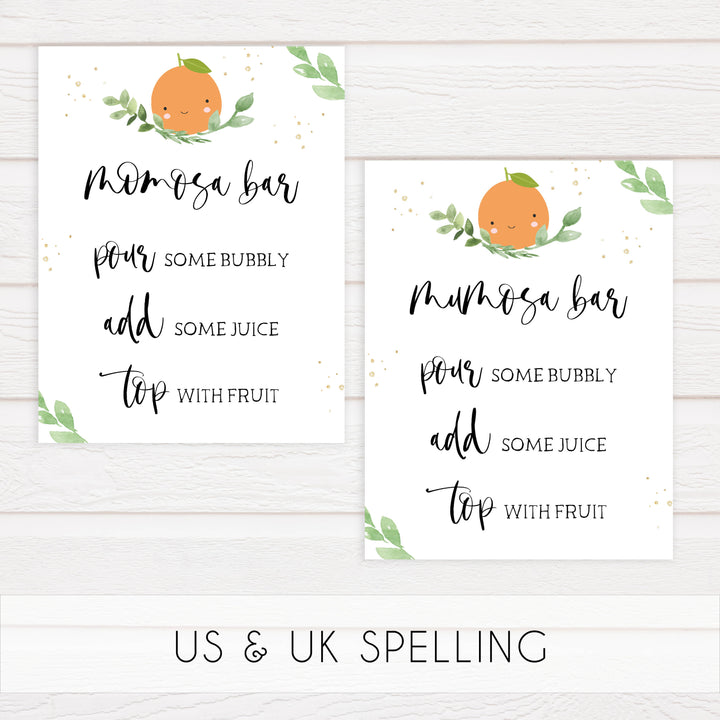 momosa bar
pour SOME BUBBLY
add SOME JUICE
top WITH FRUIT
mumosa bar
pour SOME BUBBLY
add SOME JUICE
top WITH FRUIT
US & UK SPELLING